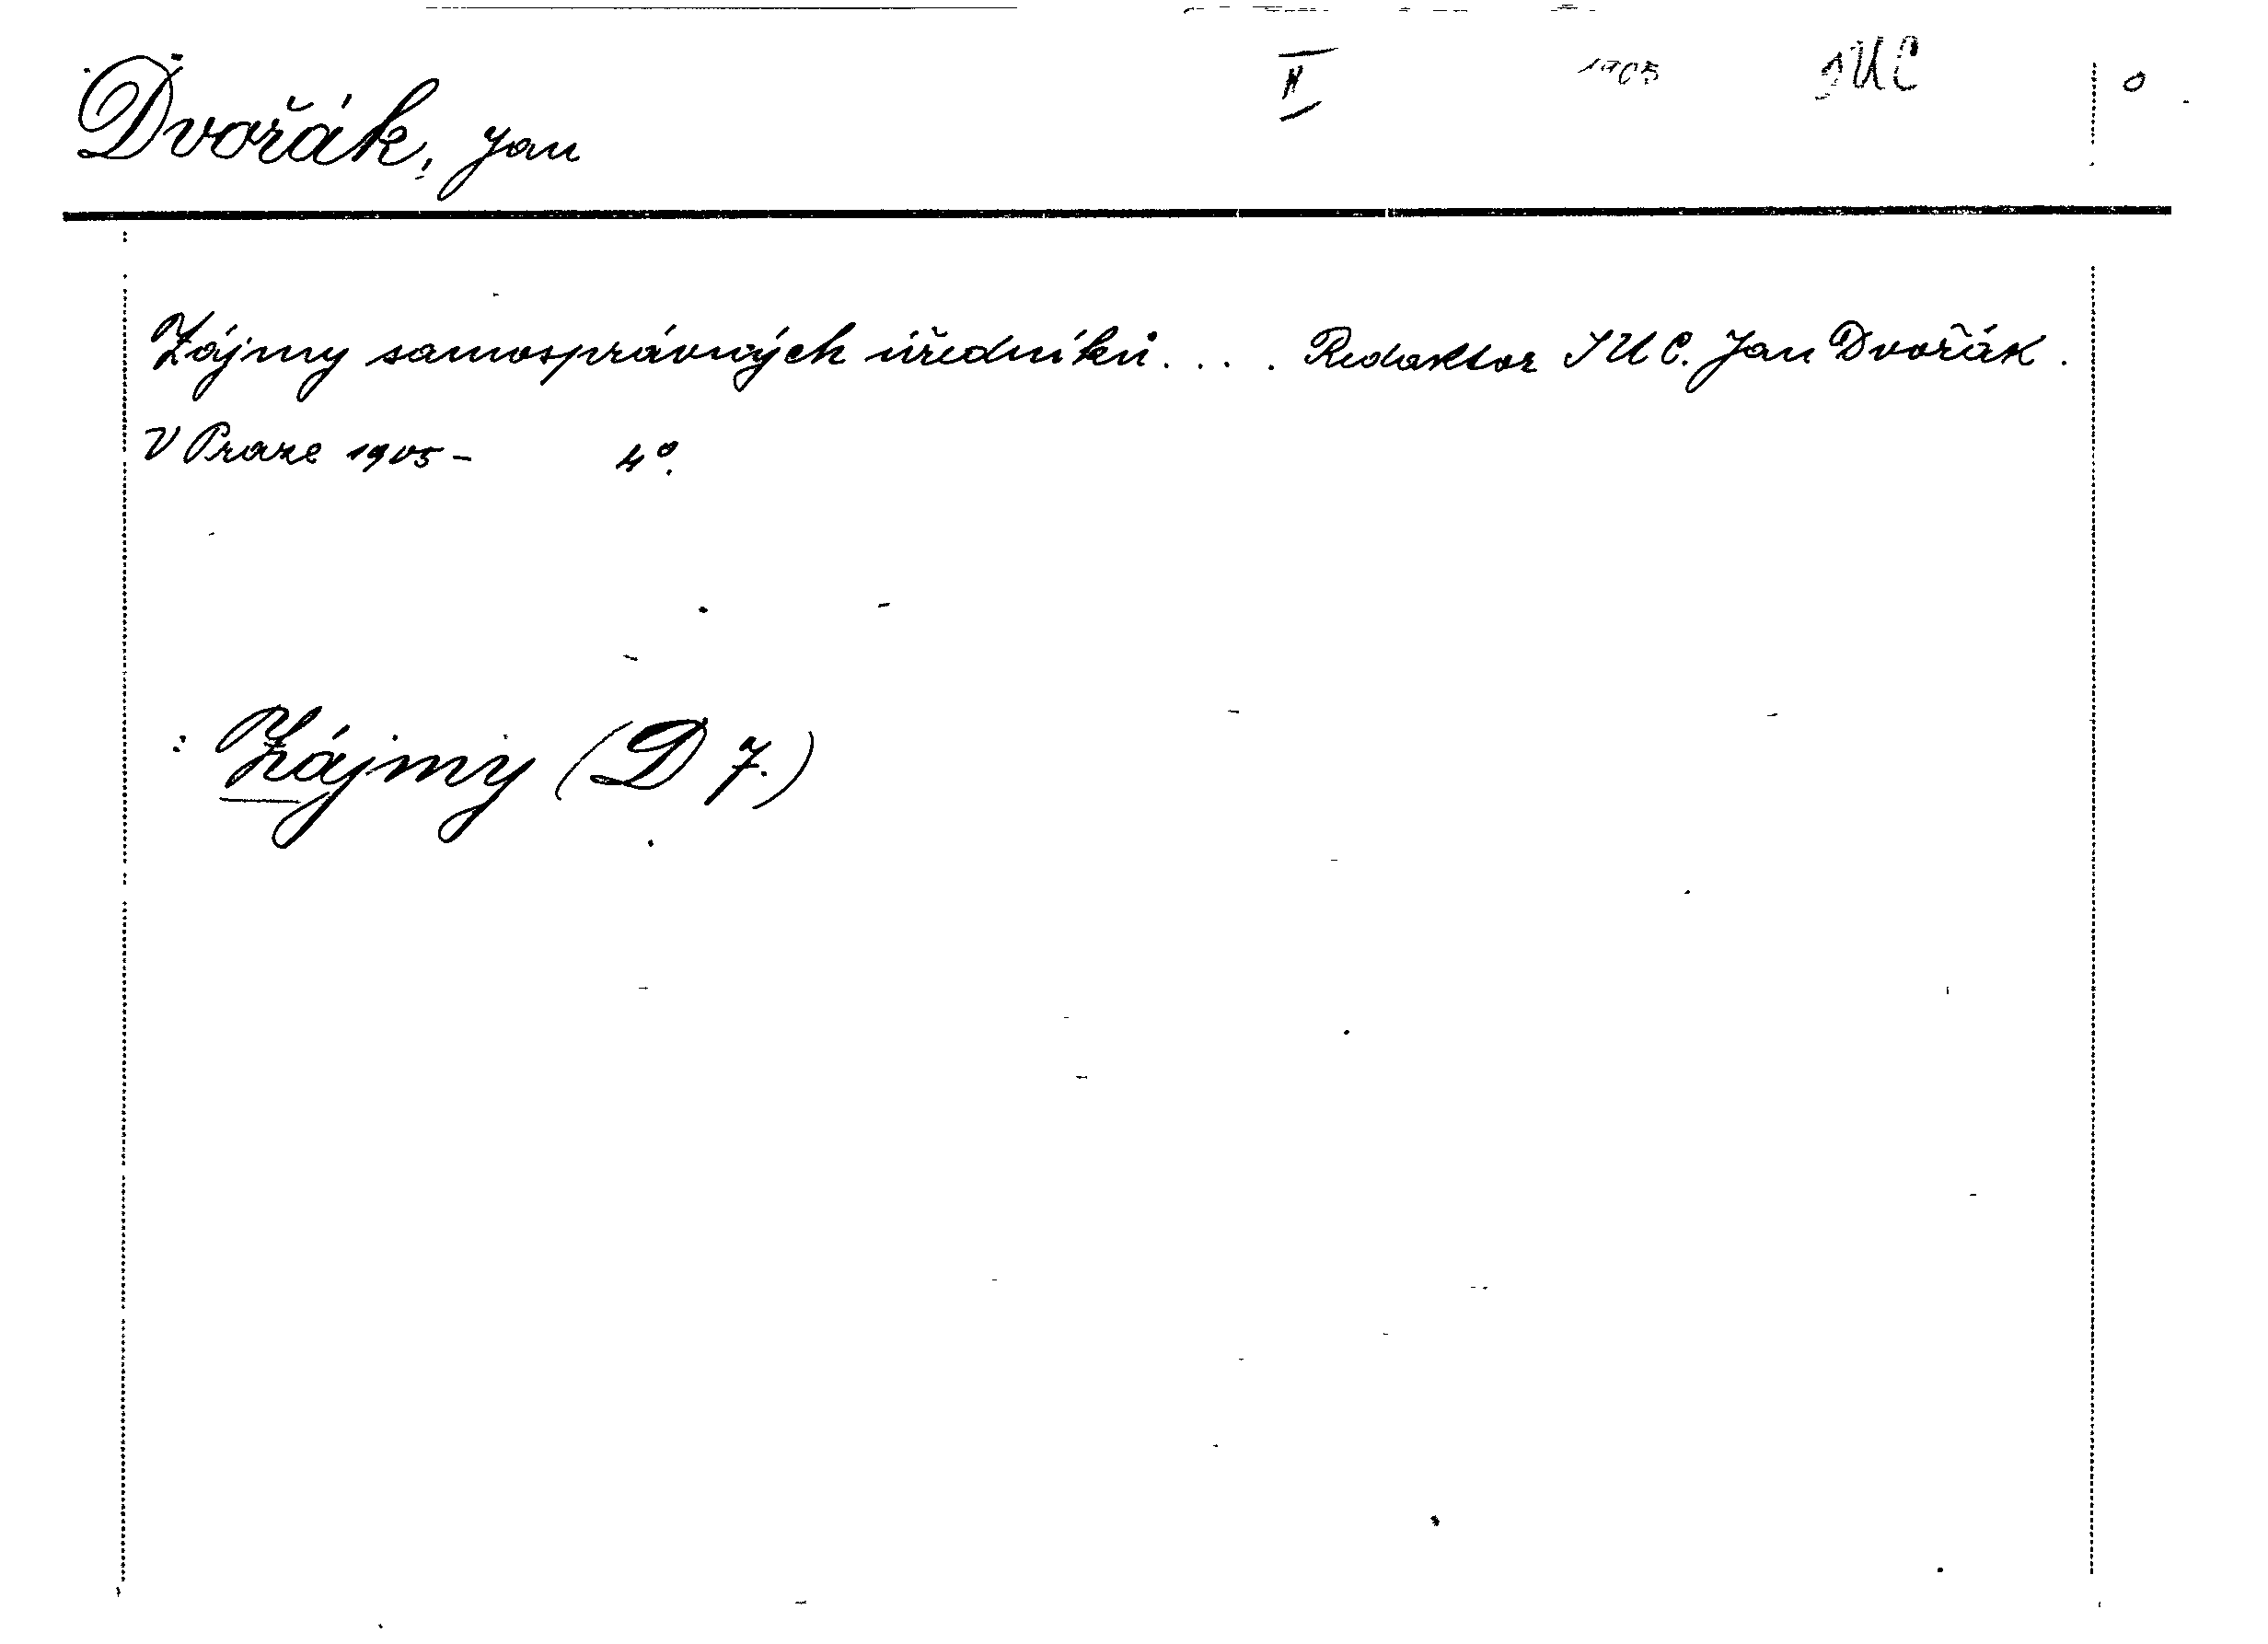 II 1905 JUC 0
Dvořák, Jan
Zájmy samosprávných úředníků.... Redaktor JUC. Jan Dvořák.
V Praze 1905- 4°.
Zájmy (D 7.)